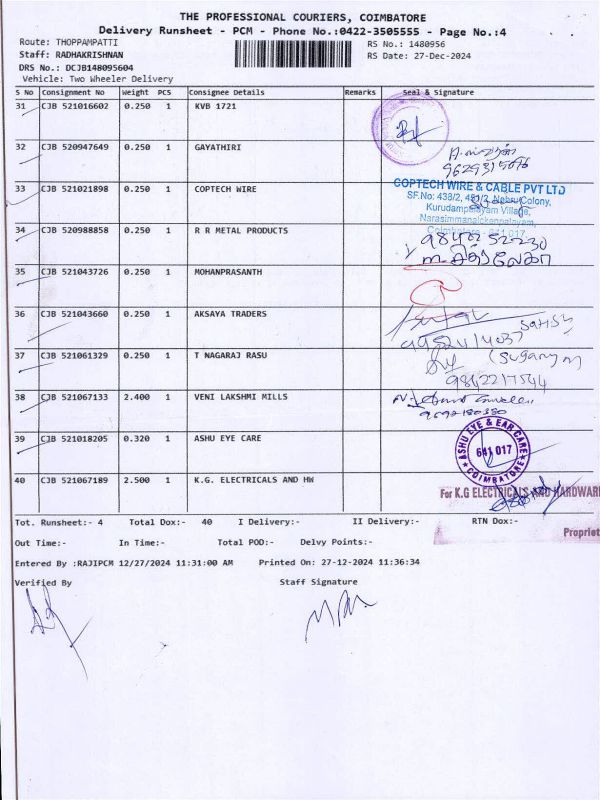 THE PROFESSIONAL COURIERS, COIMBATORE
Delivery Runsheet - PCM - Phone No.:0422-3505555 - Page No.:4
Route: THOPPAMPATTI RS No.: 1480956
Staff: RADHAKRISHNAN RS Date: 27-Dec-2024
DRS No.: DCJB148095604
Vehicle: Two Wheeler Delivery
S No Consignment No Weight PCS Consignee Details Remarks Seal & Signature
31 CJB 521016602 0.250 1 KVB 1721
32 CJB 520947649 0.250 1 GAYATHIRI
33 CJB 521021898 0.250 1 COPTECH WIRE
COPTECH WIRE & CABLE PVT LTD
SF.No: 438/2, Nehru Colony,
Kurudampalayam Village,
Narasimmanaickenpalayam,
Coimbatore - 641 017
34 CJB 520988858 0.250 1 R R METAL PRODUCTS
9842252230
35 CJB 521043726 0.250 1 MOHANPRASANTH
36 CJB 521043660 0.250 1 AKSAYA TRADERS
37 CJB 521061329 0.250 1 T NAGARAJ RASU
38 CJB 521067133 2.400 1 VENI LAKSHMI MILLS
39 CJB 521018205 0.320 1 ASHU EYE CARE
ASHU EYE & EAR CARE
641 017
COIMBATORE
40 CJB 521067189 2.500 1 K.G. ELECTRICALS AND HW
For K.G ELECTRICALS AND HARDWARE
Propriet
Tot. Runsheet:- 4 Total Dox:- 40 I Delivery:- II Delivery:- RTN Dox:-
Out Time:- In Time:- Total POD:- Delvy Points:-
Entered By :RAJIPCM 12/27/2024 11:31:00 AM Printed On: 27-12-2024 11:36:34
Verified By Staff Signature